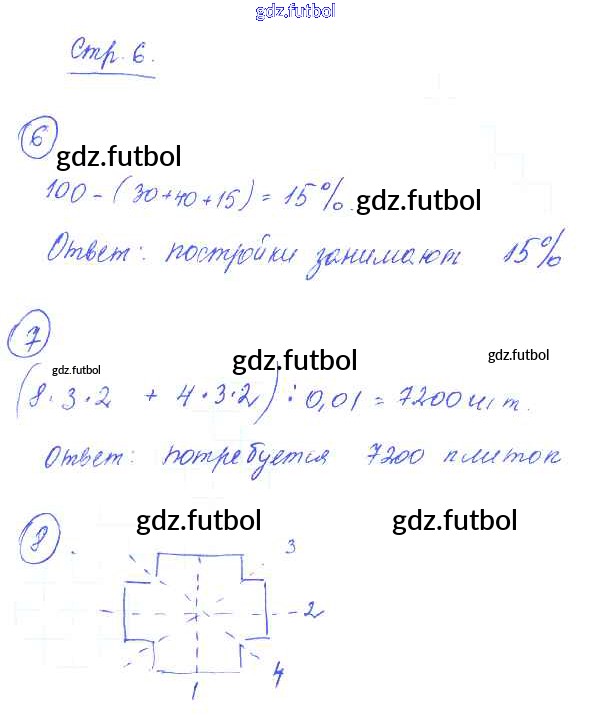 gdz.futbol
Стр. 6.
6
gdz.futbol
100 - (30+40+15) = 15%. gdz.futbol
Ответ: постройки занимают 15%
7
gdz.futbol gdz.futbol gdz.futbol
(8·3·2 + 4·3·2) : 0,01 = 7200 шт.
Ответ: потребуется 7200 плиток
8.
gdz.futbol gdz.futbol
3
2
4
1